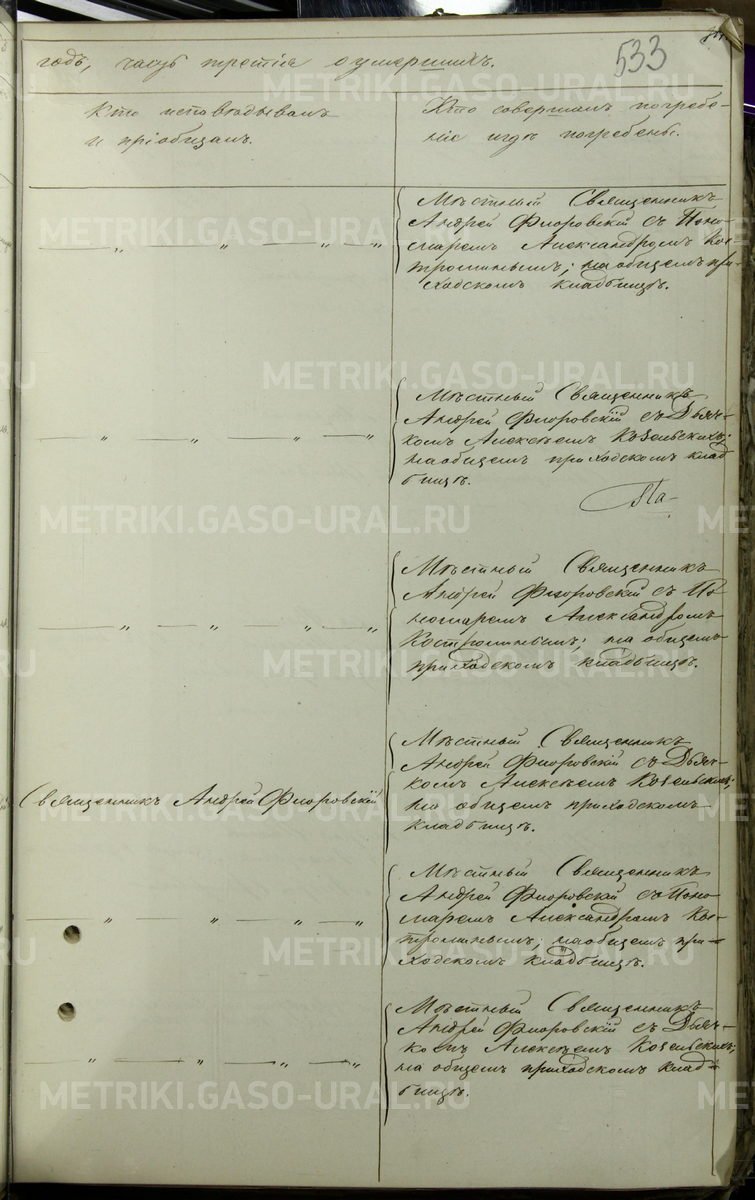 533
годъ, часть третія о умершихъ.
Кто исповѣдывалъ
и пріобщалъ.
Кто совершалъ погребе-
ніе и гдѣ погребены.
Мѣстный Священникъ
Андрей Флоровскій съ Поно-
маремъ Александромъ Кос-
троминымъ; на общемъ при-
ходскомъ кладбищѣ.
— „ — „ — „ — „
Мѣстный Священникъ
Андрей Флоровскій съ Дьяч-
комъ Алексѣемъ Козельскихъ;
на общемъ приходскомъ клад
бищѣ.
— „ — „ — „ — „
Па-
Мѣстный Священникъ
Андрей Флоровскій съ По
номаремъ Александромъ
Костроминымъ; на общемъ
приходскомъ кладбищѣ.
— „ — „ — „ — „
Священникъ Андрей Флоровскій
Мѣстный Священникъ
Андрей Флоровскій съ Дьяч-
комъ Алексѣемъ Козельскихъ;
на общемъ приходскомъ
кладбищѣ.
— „ — „ — „ — „
Мѣстный Священникъ
Андрей Флоровскій съ Поно
маремъ Александромъ Кос-
троминымъ; на общемъ при-
ходскомъ кладбищѣ.
— „ — „ — „ — „
Мѣстный Священникъ
Андрей Флоровскій съ Дьяч-
комъ Алексѣемъ Козельскихъ;
на общемъ приходскомъ клад-
бищѣ.
METRIKI.GASO-URAL.RU